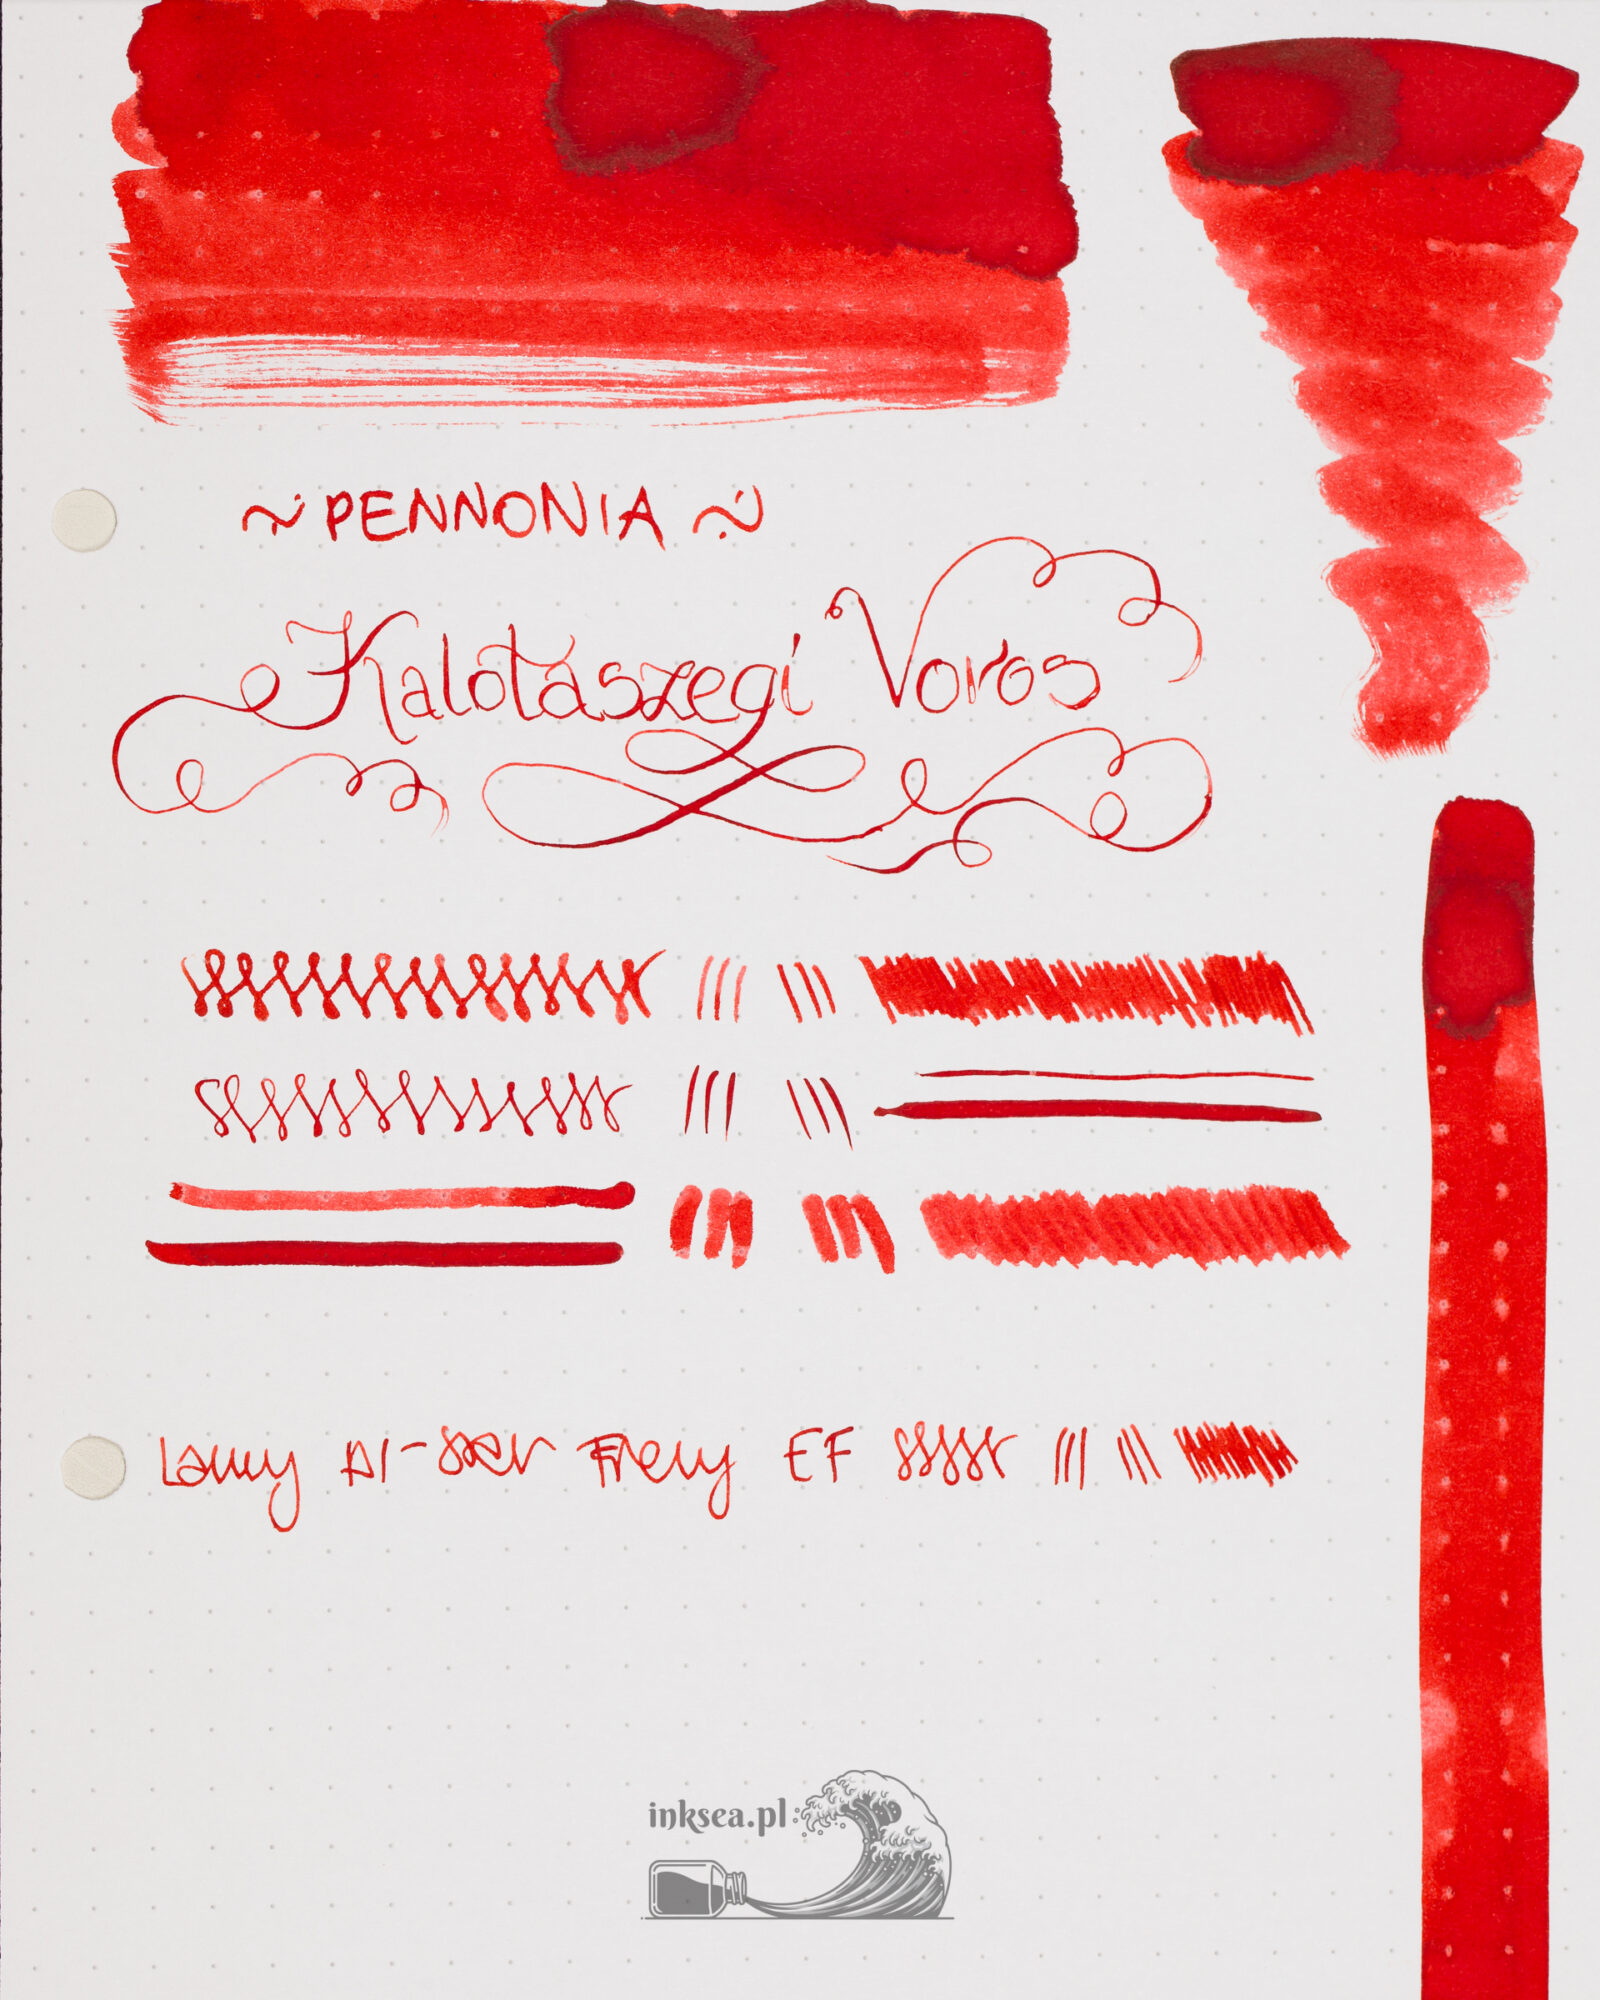 ~ PENNONIA ~
Kalotaszegi Voros
Lamy Al-star Fiery EF
inksea.pl